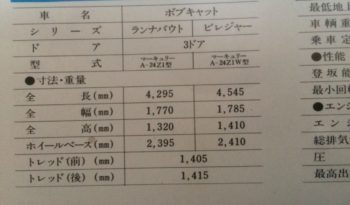 車名 ボブキャット
シリーズ ランナバウト ビレジャー
ドア 3ドア
型式 マーキュリー A-24Z1型 マーキュリー A-24Z1W型
●寸法・重量
全長(mm) 4,295 4,545
全幅(mm) 1,770 1,785
全高(mm) 1,320 1,410
ホイールベース(mm) 2,395 2,410
トレッド(前)(mm) 1,405
トレッド(後)(mm) 1,415
最低地上
車輌重
乗車定
●性能
登坂能
最小回
●エンジ
エンジ
総排気
圧
最高出